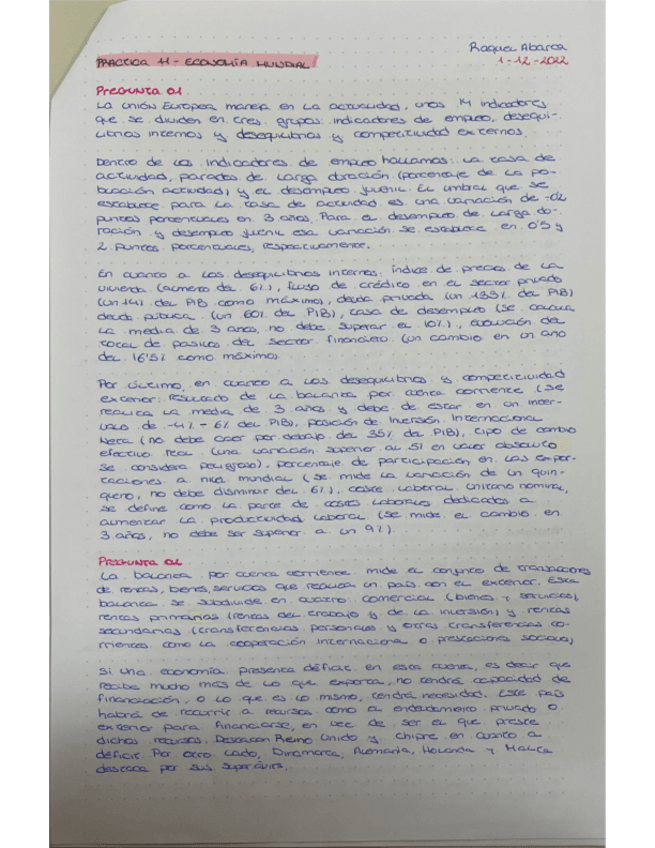 Raquel Abarca
PRACTICA 11 - ECONOMÍA MUNDIAL
1-12-2022
PREGUNTA 01
La Unión Europea maneja en la actualidad, unos 14 indicadores
que se dividen en tres grupos: indicadores de empleo, desequi-
librios internos y desequilibrios y competitividad externos.
Dentro de los indicadores de empleo hallamos: la tasa de
actividad, parados de larga duración (porcentaje de la po-
blación actividad) y el desempleo juvenil. El umbral que se
establece para la tasa de actividad es una variación de -0'2
puntos porcentuales en 3 años. Para el desempleo de larga du-
ración y desempleo juvenil esa variación se establece en 0'5 y
2 puntos porcentuales, respectivamente.
En cuanto a los desequilibrios internos: índice de precios de la
vivienda (aumento del 6%), flujo de crédito en el sector privado
(un 14% del PIB como máximo), deuda privada (un 133% del PIB)
deuda pública (un 60% del PIB), tasa de desempleo (se calcula
la media de 3 años, no debe superar el 10%), evolución del
total de pasivos del sector financiero (un cambio en un año
del 16'5% como máximo).
Por último, en cuanto a los desequilibrios y competitividad
exterior: resultado de la balanza por cuenta corriente (se
realiza la media de 3 años y debe de estar en un inter-
valo de -4% - 6% del PIB), posición de Inversión Internacional
Neta (no debe caer por debajo del 35% del PIB), tipo de cambio
efectivo real (una variación superior al 5% en valor absoluto
se considera peligroso), porcentaje de participación en las expor-
taciones a nivel mundial (se mide la variación de un quin-
quenio, no debe disminuir del 6%), coste laboral unitario nominal,
se define como la parte de costes laborales dedicados a
aumentar la productividad laboral (se mide el cambio en
3 años, no debe ser superior a un 9%).
PREGUNTA 02
La balanza por cuenta corriente mide el conjunto de transacciones
de rentas, bienes, servicios que realiza un país con el exterior. Esta
balanza se subdivide en cuatro: comercial (bienes y servicios),
rentas primarias (rentas del trabajo y de la inversión) y rentas
secundarias (transferencias personales y otras transferencias co-
rrientes como la cooperación internacional o prestaciones sociales)
Si una economía presenta déficit en esta cuenta, es decir que
recibe mucho más de lo que exporta, no tendrá capacidad de
financiación, o lo que es lo mismo, tendrá necesidad. Este país
habrá de recurrir a recursos como el endeudamiento privado o
exterior para financiarse, en vez de ser el que preste
dichos recursos. Destacan Reino Unido y Chipre en cuanto a
déficit. Por otro lado, Dinamarca, Alemania, Holanda y Malta
destaca por sus superávits.